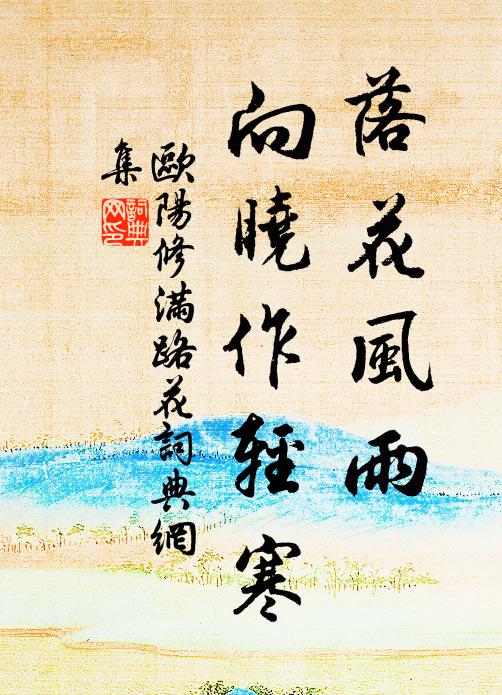 落花風雨
向曉作輕寒
歐陽修滿路花詞典網
集
詞典
网印